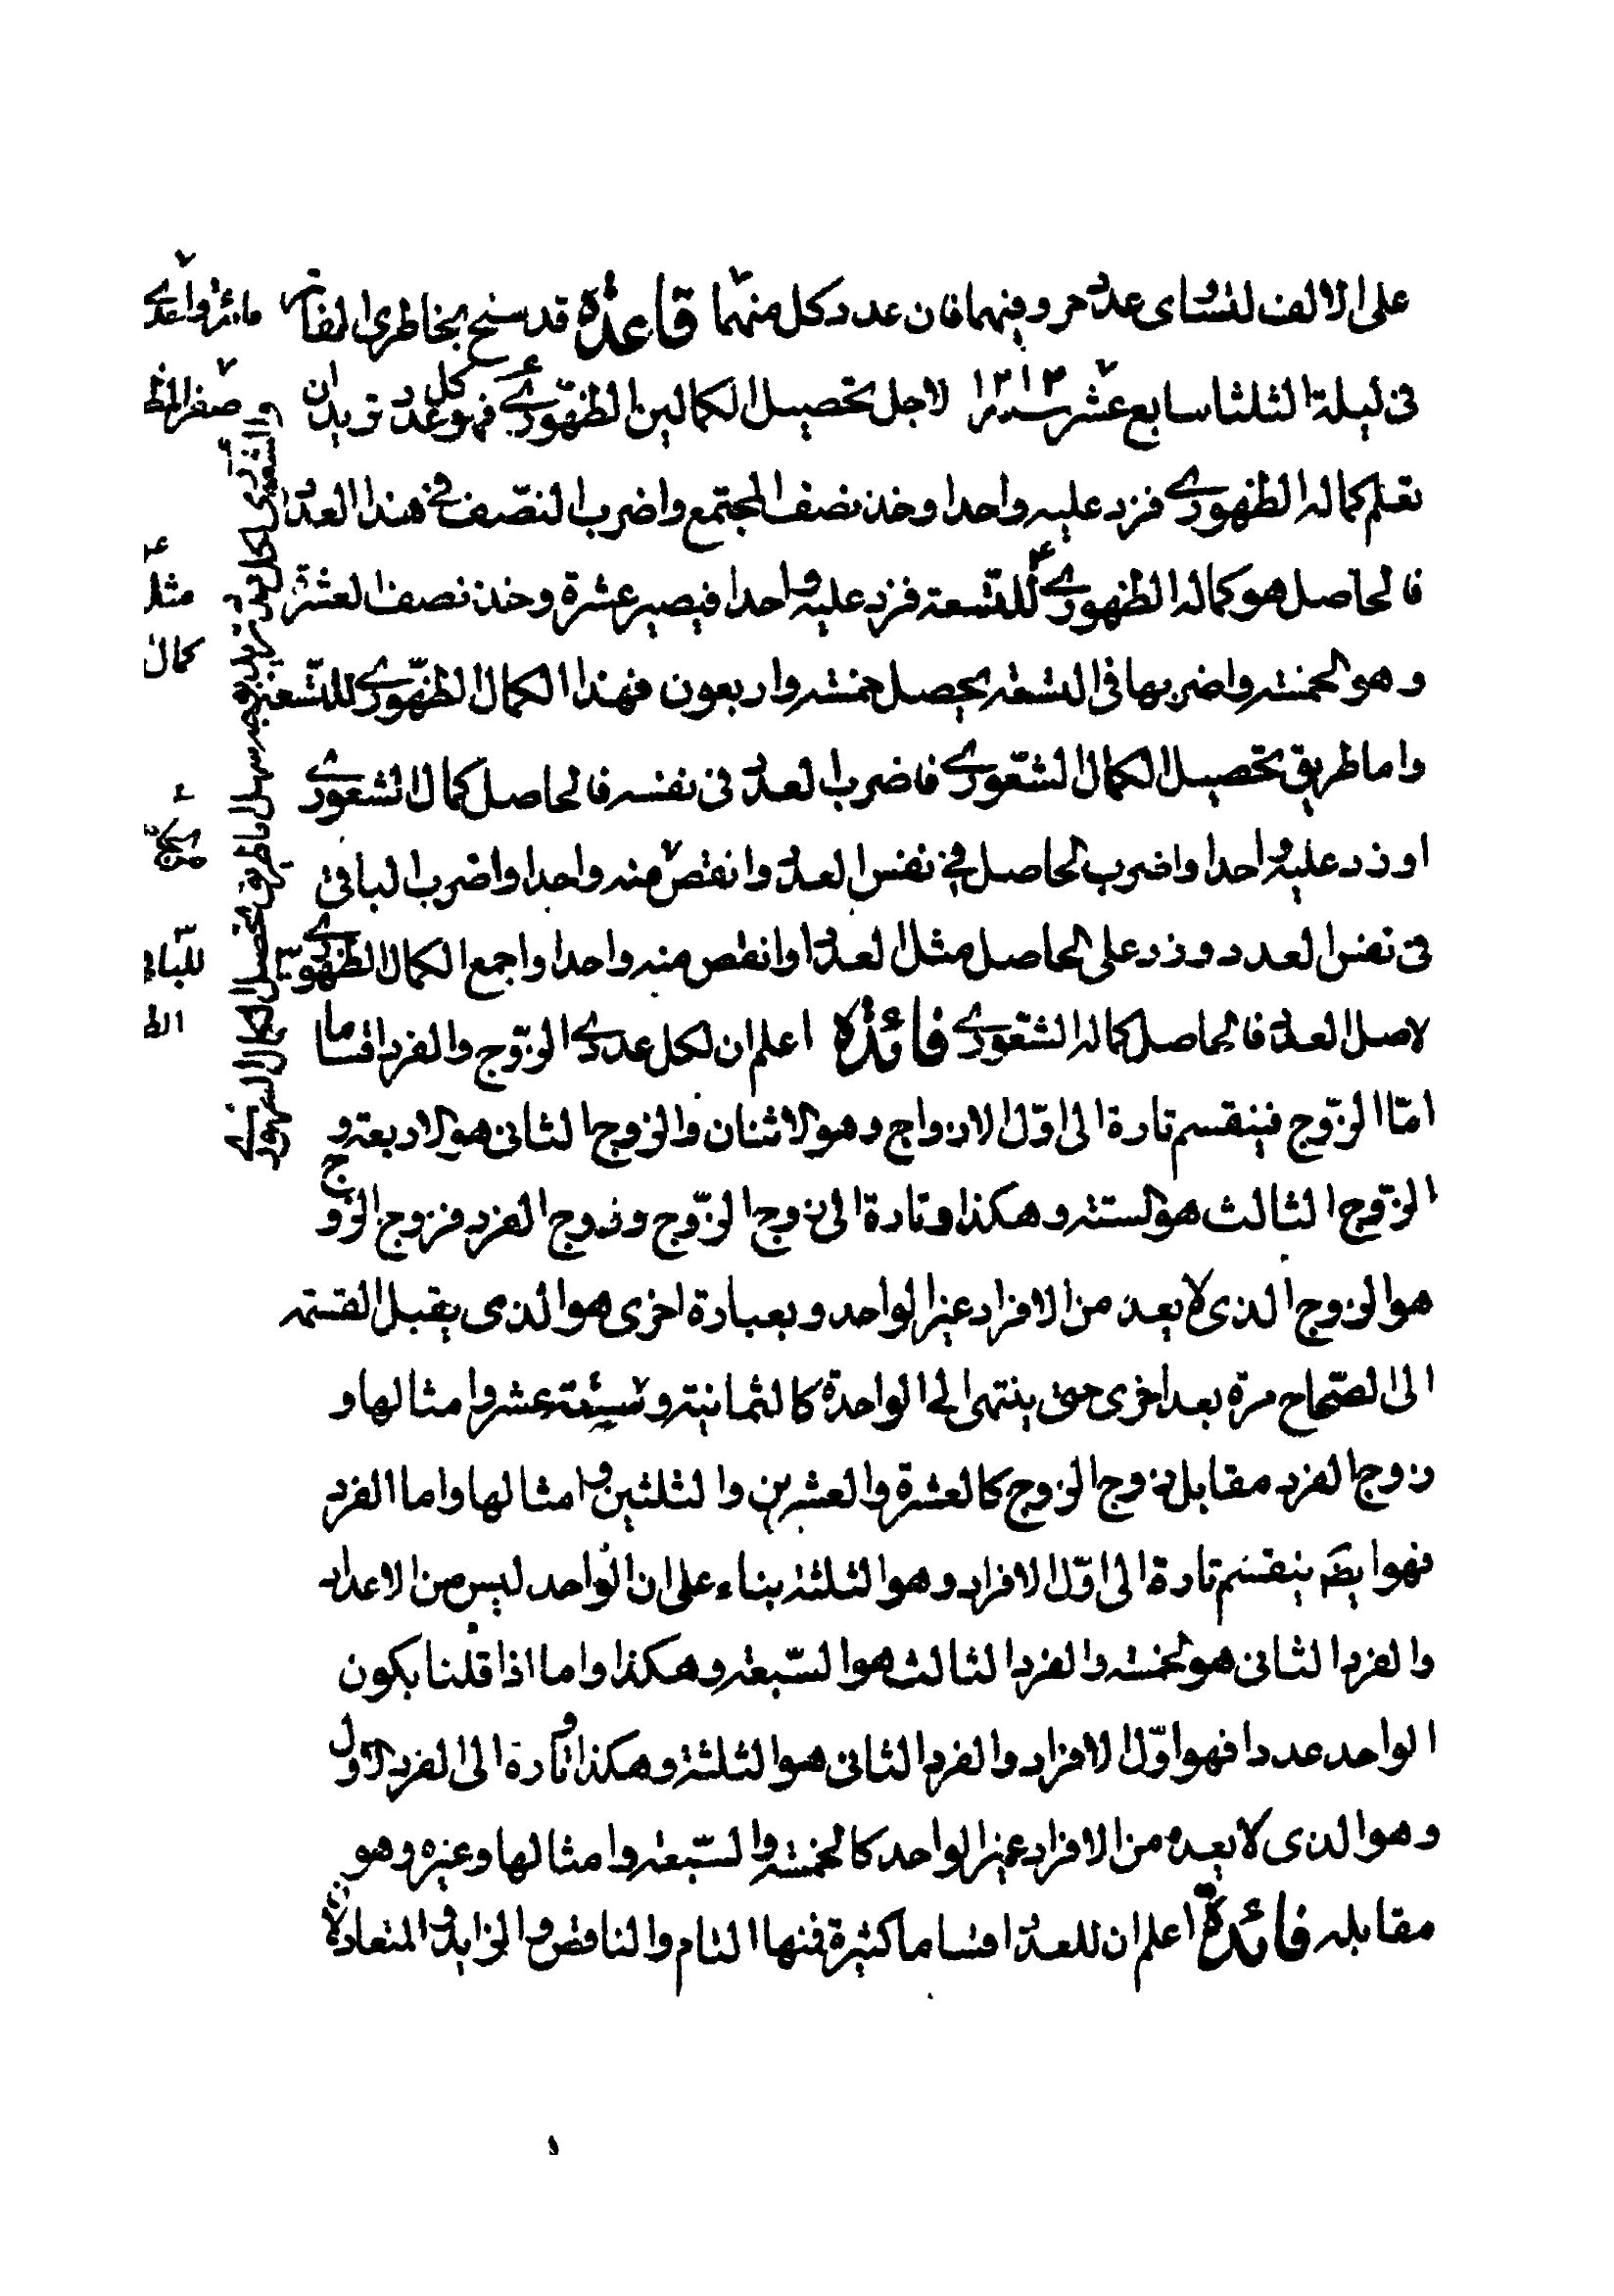 على الالف لتساوى عدد حروفهما فان عدد كل منهما قاعدة قد سنح بخاطرى الفاتر
فى ليلة الثلثا سابع عشر ١٣١٣ لاجل تحصيل الكمالين الظهورى فهو كل عدد تريد ان
تعلم كماله الظهورى فزد عليه واحدا وخذ نصف المجتمع واضرب النصف فى هذا العدد
فالحاصل هو كماله الظهورى للتسعة فزد عليه واحدا فيصير عشرة وخذ نصف العشرة
وهو الخمسة واضربها فى التسعة يحصل خمسة واربعون فهذا الكمال الظهورى للتسعة
واما طريق تحصيل الكمال الشعورى فاضرب العدد فى نفسه فالحاصل كمال الشعورى
او زد عليه واحدا واضرب الحاصل فى نفس العدد وانقص منه واحدا واضرب الباقى
فى نفس العدد وزد على الحاصل مثل العدد او انقص منه واحدا واجمع الكمال الظهورى
لاصل العدد فالحاصل كماله الشعورى فائدة اعلم ان لكل عددى الزوج والفرد اقساما
امّا الزوّج فينقسم تارة الى اوّل الازواج وهو الاثنان والزوج الثانى هو الاربعة و
الزوّج الثالث هو الستة وهكذا وتارة الى زوج الزوّج وزوج الفرد فزوج الزوج
هو الزوج الذى لا يعد من الافراد غير الواحد وبعبارة اخرى هو الذى يقبل القسمة
الى الصحاح مرة بعد اخرى حتى ينتهى الى الواحدة كالثمانية وستة عشر وامثالها و
زوج الفرد مقابل زوج الزوج كالعشرة والعشرين والثلثين وامثالها واما الفرد
فهو ايضا ينقسم تارة الى اوّل الافراد وهو الثلثة بناء على ان الواحد ليس من الاعداد
والفرد الثانى هو الخمسة والفرد الثالث هو السّبعة وهكذا واما اذا قلنا بكون
الواحد عددا فهو اوّل الافراد والفرد الثانى هو الثلثة وهكذا وتارة الى الفرد الاول
وهو الذى لا يعده من الافراد غير الواحد كالخمسة والسّبعة وامثالها وغيره وهو
مقابله فائدة اعلم ان للعدد اقساما كثيرة فمنها التام والناقص والزايد والمتعادلان
والشعورى لكل
سهل واطريق تحصيل الكمال الشعورى
صفر
مثل
كمال